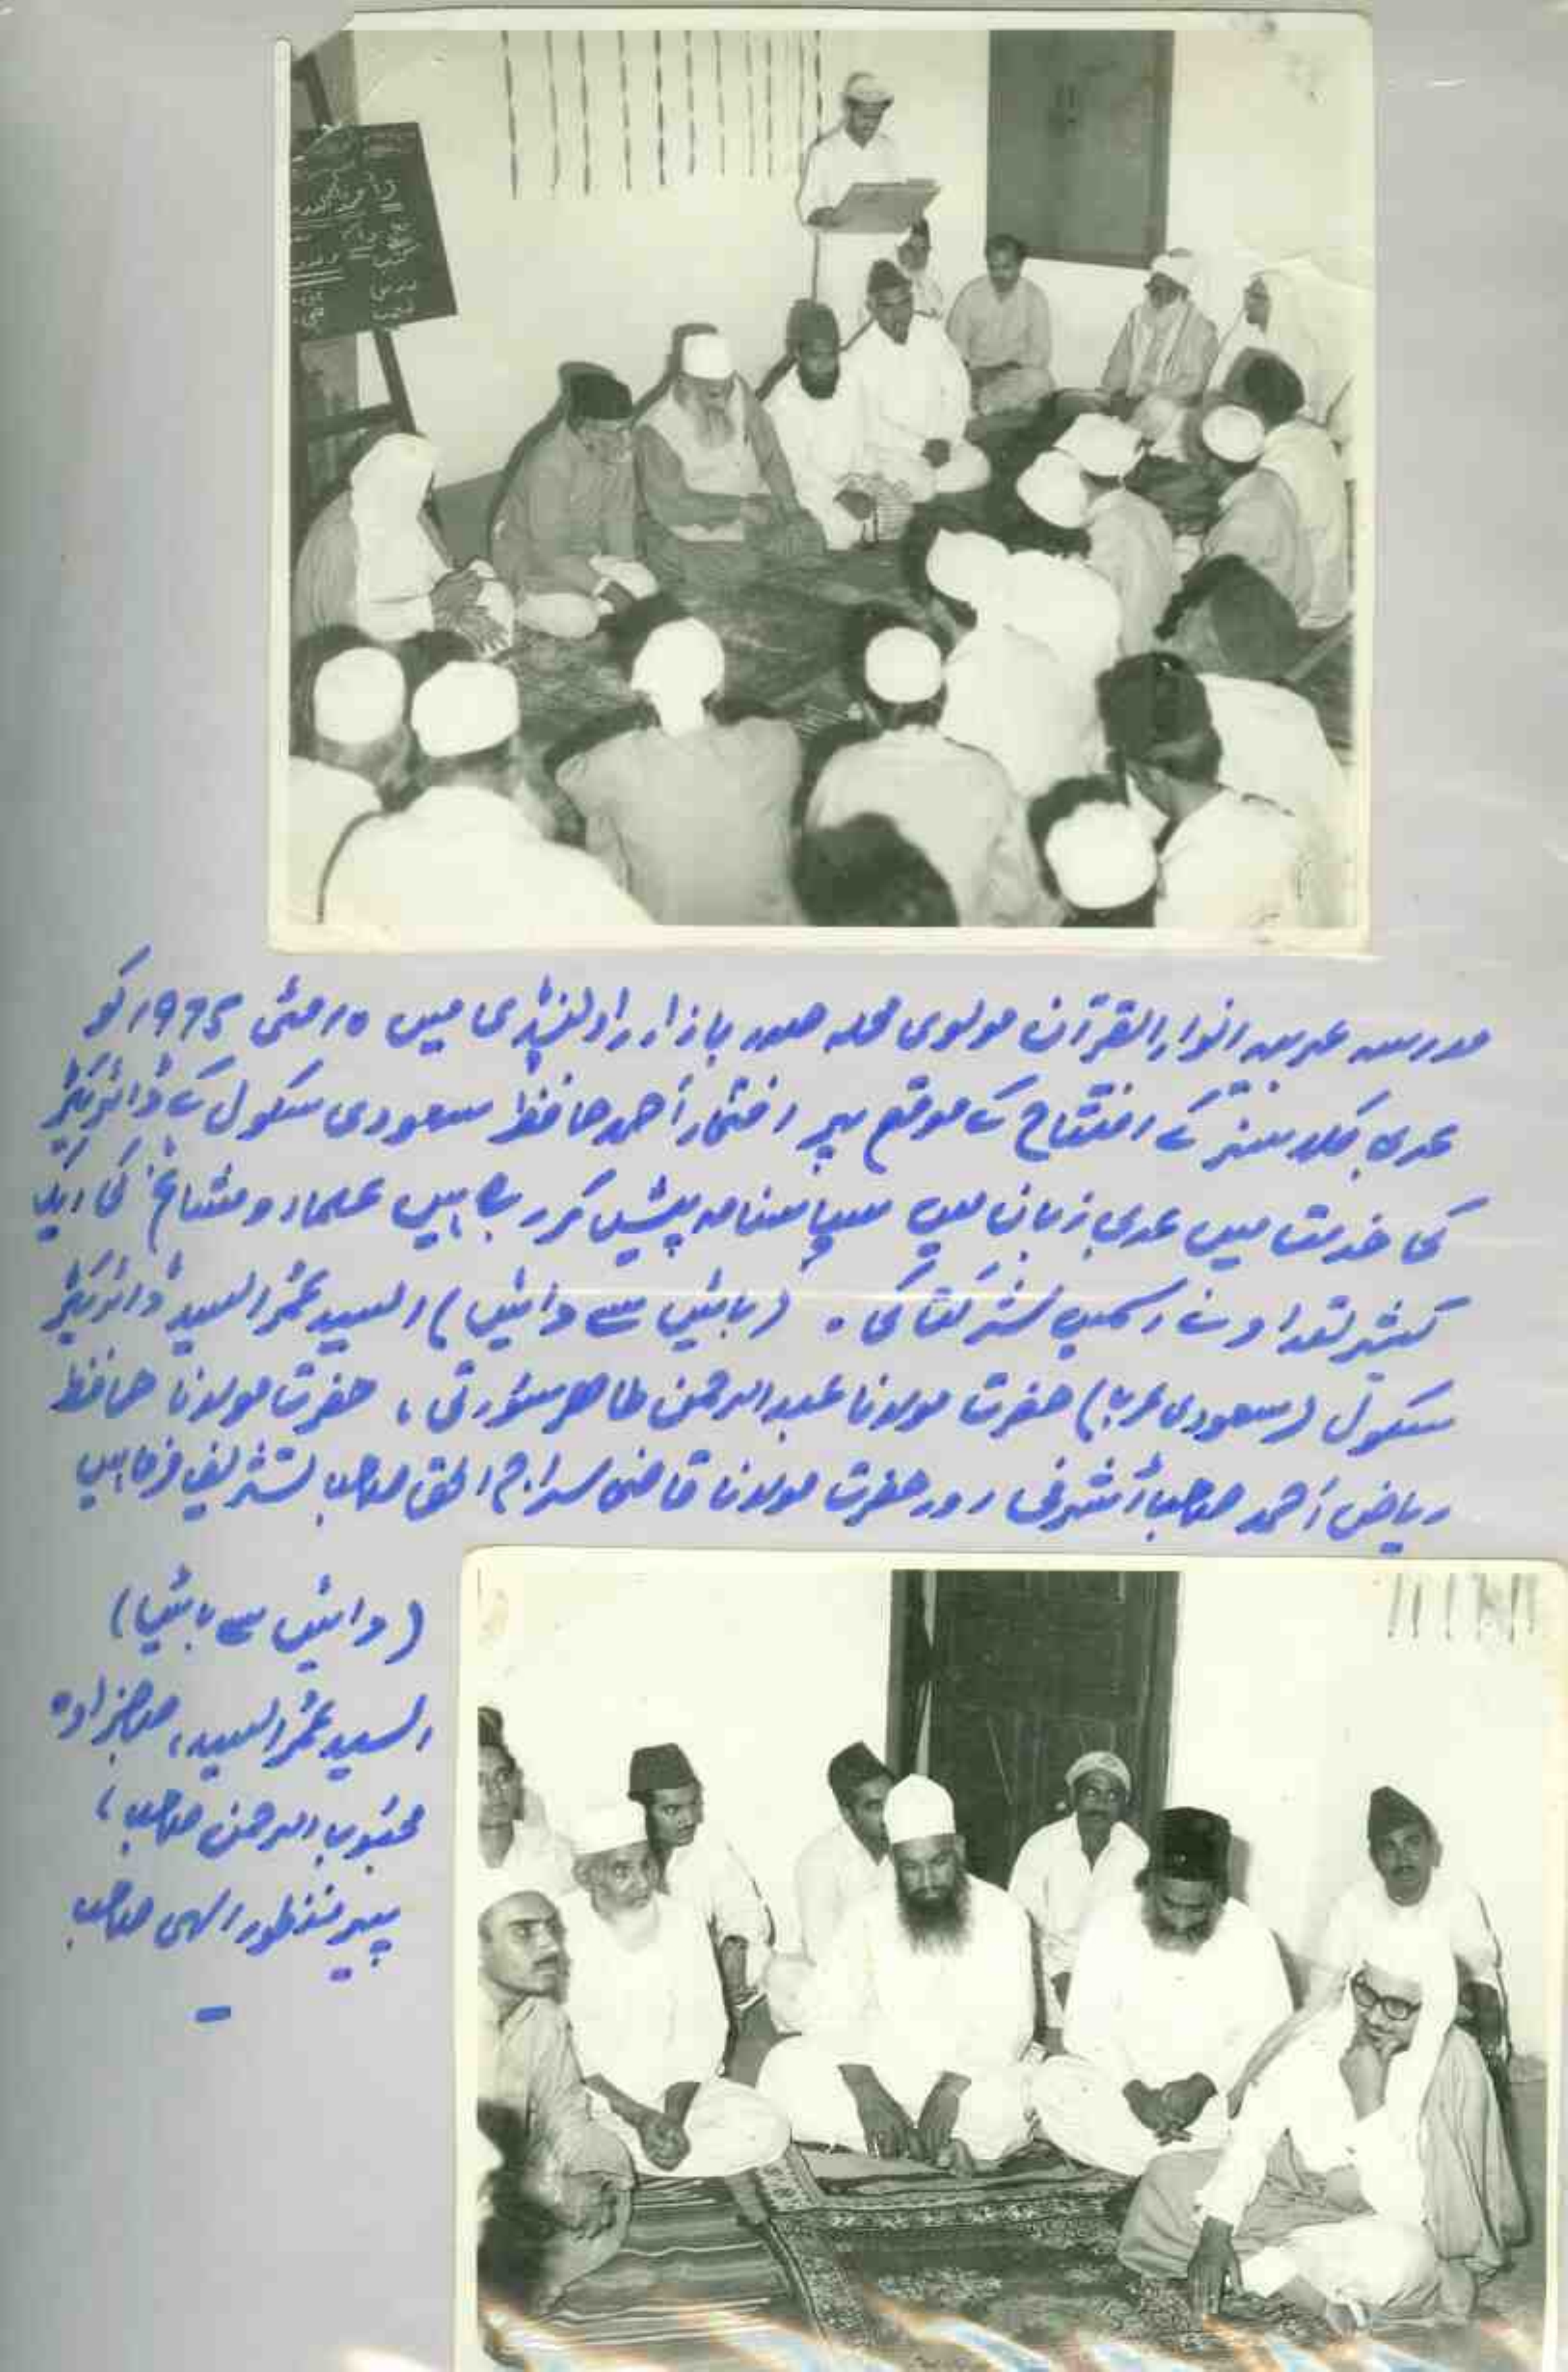 مدرسہ عربیہ انوار القرآن مولوی محلہ صدر بازار راولپنڈی میں ۱۵ مئی ۱۹۷۵ء کو
عربی کلاسز کے افتتاح کے موقع پر افتخار احمد حافظ سعودی سکول کے ڈائریکٹر
کی خدمت میں عربی زبان میں سپاسنامہ پیش کر رہے ہیں علماء و مشائخ کی ایک
کثیر تعداد نے اسمیں شرکت کی ۔ (بائیں سے دائیں) السید عمر السید ڈائریکٹر
سکول (سعودی عرب) حضرت مولانا عبدالرحمن طاہر سورتی، حضرت مولانا حافظ
ریاض احمد صاحب اشرفی اور حضرت مولانا قاضی سراج الحق صاحب تشریف فرما ہیں
(دائیں سے بائیں)
السید عمر السید، صاحبزادہ
محبوب الرحمن صاحب،
پیر منظور الہی صاحب